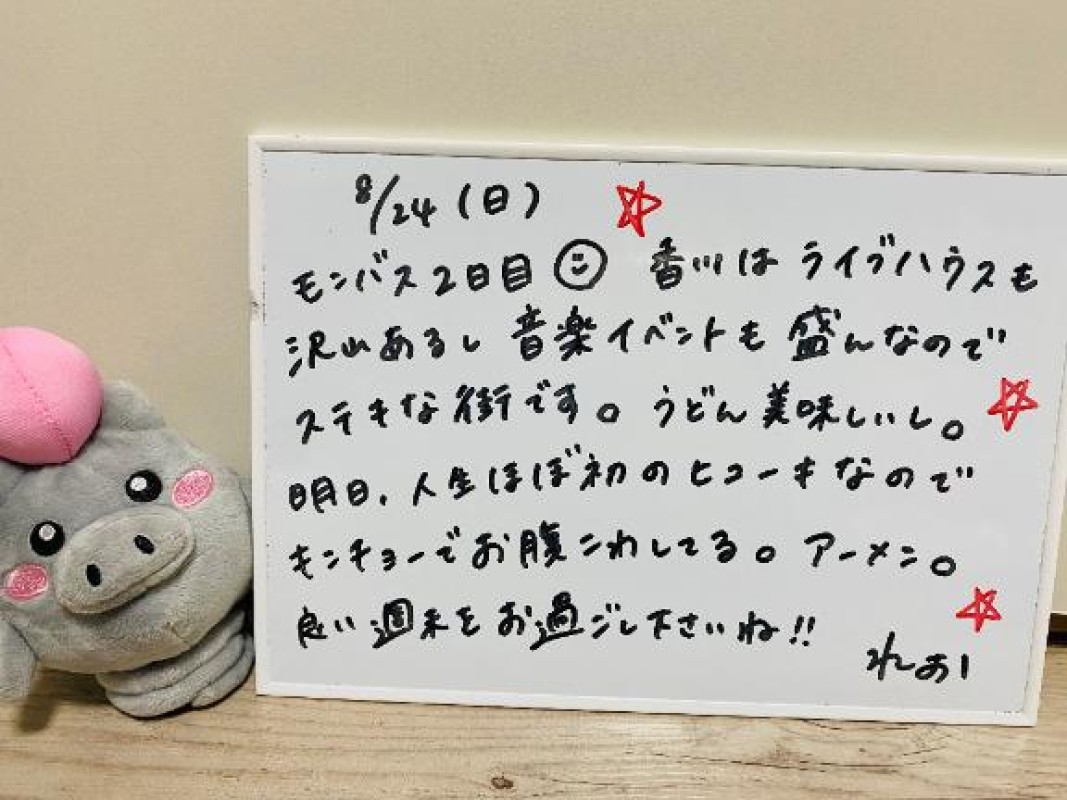 8/24(日)
モンバス2日目 香川はライブハウスも
沢山あるし音楽イベントも盛んなので
ステキな街です。うどん美味しいし。
明日、人生ほぼ初のヒコーキなので
キンチョーでお腹こわしてる。アーメン。
良い週末をお過ごし下さいね!!
れあ